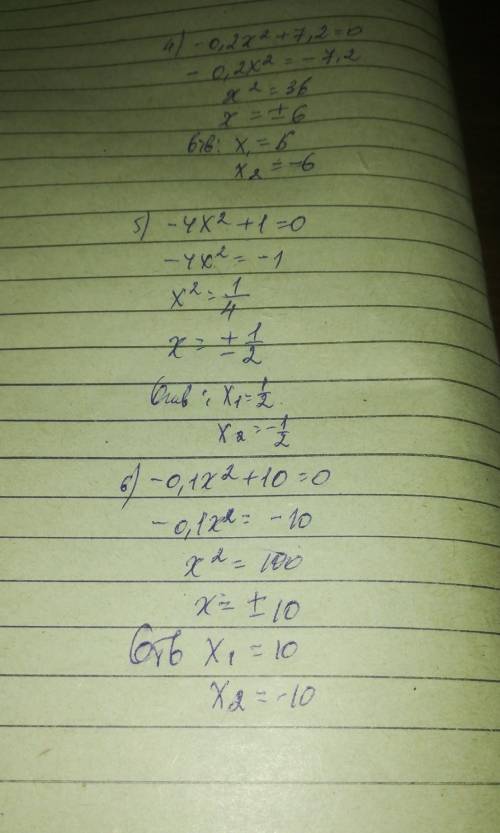 4) -0,2x² + 7,2 = 0
- 0,2x² = - 7,2
x² = 36
x = ± 6
Отв: x₁ = 6
x₂ = -6
5) -4x² + 1 = 0
-4x² = -1
x² = 1/4
x = ± 1/2
Отв: x₁ = 1/2
x₂ = -1/2
6) -0,1x² + 10 = 0
-0,1x² = -10
x² = 100
x = ± 10
Отв x₁ = 10
x₂ = -10